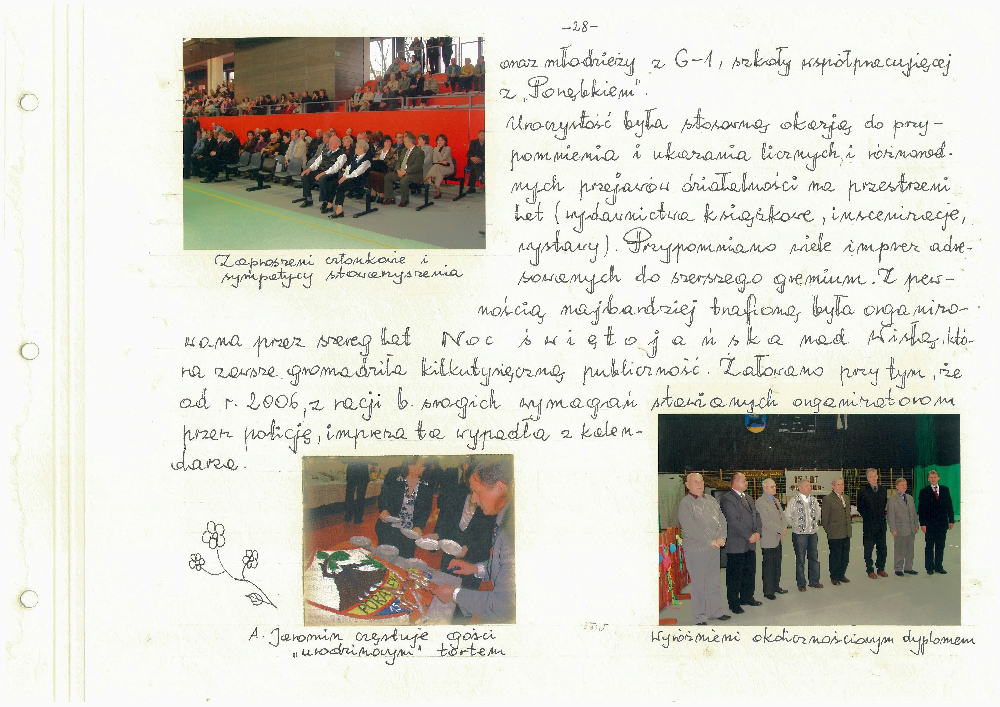 -28-
oraz młodzieży z G-1, szkoły współpracującej
z „Porąbkiem".
Uroczystość była stosowną okazją do przy-
pomnienia i ukazania licznych i różnorod-
nych przejawów działalności na przestrzeni
lat (wydawnictwa książkowe, inscenizacje,
wystawy). Przypomniano wiele imprez adre-
sowanych do szerszego gremium. Z pew-
nością najbardziej trafioną była organizo-
wana przez szereg lat Noc świętojańska nad Wisłą, któ-
ra zawsze gromadziła kilkutysięczną publiczność. Żałowano przy tym, że
od r. 2006, z racji b. srogich wymagań stawianych organizatorom
przez policję, impreza ta wypadła z kalen-
darza.
Zaproszeni członkowie i
sympatycy stowarzyszenia
A. Jaromin częstuje gości
„urodzinowym" tortem
15 LAT
Wyróżnieni okolicznościowym dyplomem